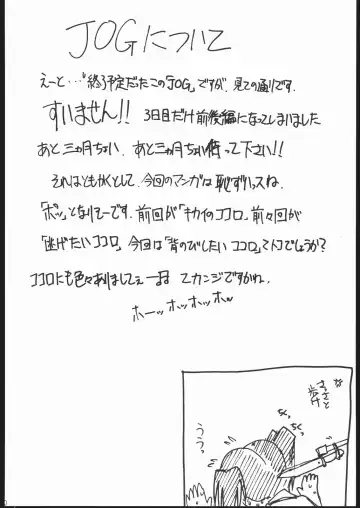 JOGについて
えーと…"終了予定だったこの「JOG」ですが、見ての通りです。
すいません!! 3日目だけ前後編になってしまいました
あと三ヵ月ちょい、あと三ヵ月ちょい待って下さい!!
それはともかくとして、今回のマンガは恥ずいッスね。
「ポッ」となりそーです。前回が「キカイのココロ」、前々回が
「逃げたいココロ」、今回は「背のびしたいココロ」ってトコでしょうか?
ココロにも色々ありましてェー
ホーッホッホッホッ
さっさと
歩け
ううっ